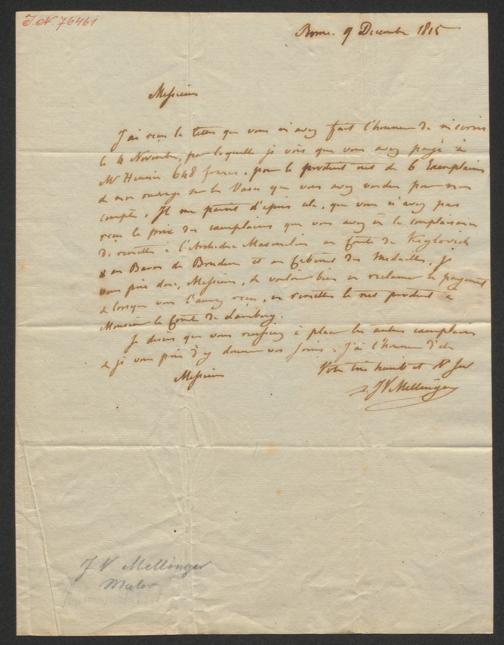 I.N 76461
Rome. 9 Decembre 1815
Messieurs
J'ai reçu la lettre que vous m'avez fait l'honneur de m'ecrire
le 4 Novembre, par laquelle je vois que vous avez payé à
Mr 648 francs, pour le produit net de 6 Exemplaires
de mon ouvrage sur les Vases que vous avez vendus pour mon
compte. Il me parait d'après cela, que vous n'avez pas
reçu le prix des exemplaires que vous avez eu la complaisance
de remettre à l'Archiduc Maximilien, au Comte de
au Baron de et au Cabinet des Medailles. Je
vous prie donc, Messieurs, de vouloir bien en reclamer le payement
& lorsque vous l'aurez reçu, en remettre le net produit à
Monsieur le Comte de
Je desire que vous reussissiez à placer les autres exemplaires
& je vous prie d'y donner vos soins. J'ai l'honneur d'etre
Messieurs
Votre tres humble et
J V Mellinger
J V Mellinger
Maler